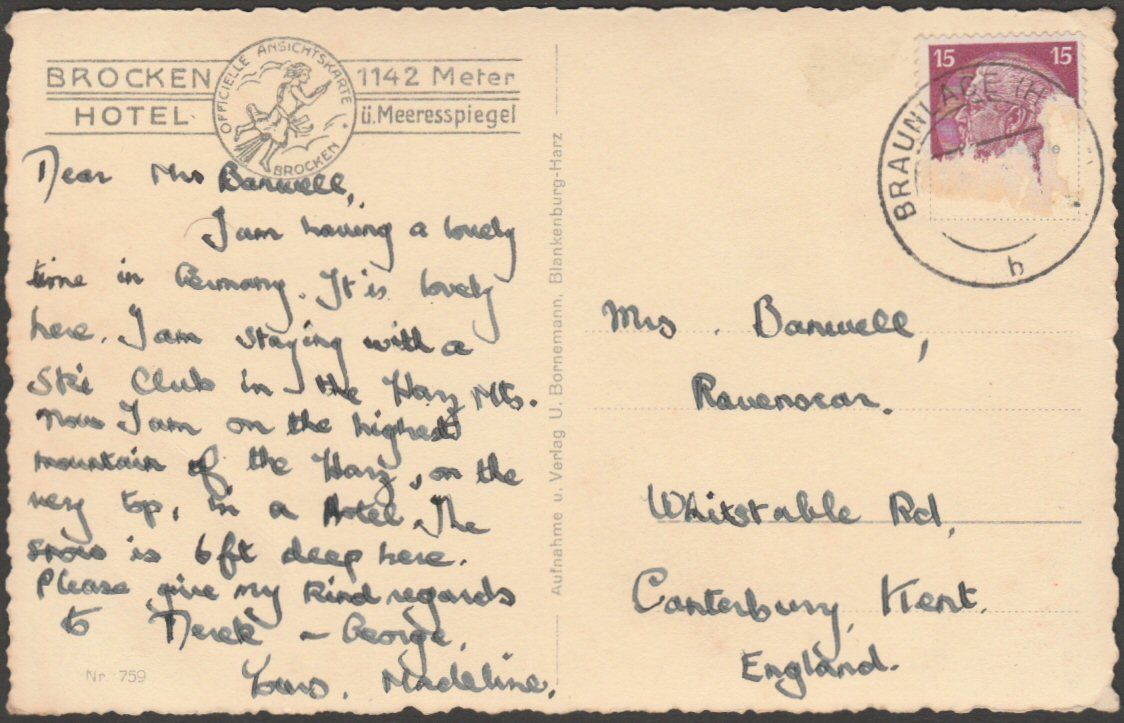 BROCKEN
HOTEL
OFFICIELLE ANSICHTSKARTE
BROCKEN
1142 Meter
ü.Meeresspiegel
Dear Mrs Banwell,
I am having a lovely
time in Germany. It is lovely
here. I am staying with a
Ski Club in the Harz Mts.
Now I am on the highest
mountain of the Harz, on the
very top, in a Hotel. The
snow is 6ft deep here.
Please give my kind regards
to Derek – George.
Yours, Madeline.
Nr. 759
Aufnahme u. Verlag U. Bornemann, Blankenburg-Harz
15 15
BRAUNLAGE (H
b
Mrs. Banwell,
Ravenscar.
Whitstable Rd,
Canterbury, Kent.
England.